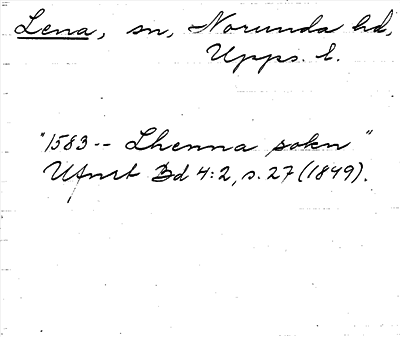 Lena, sn, Norunda hd,
Upps. l.
"1583-- Lhenna sokn"
Ufnrt Bd 4:2, s. 27 (1849).